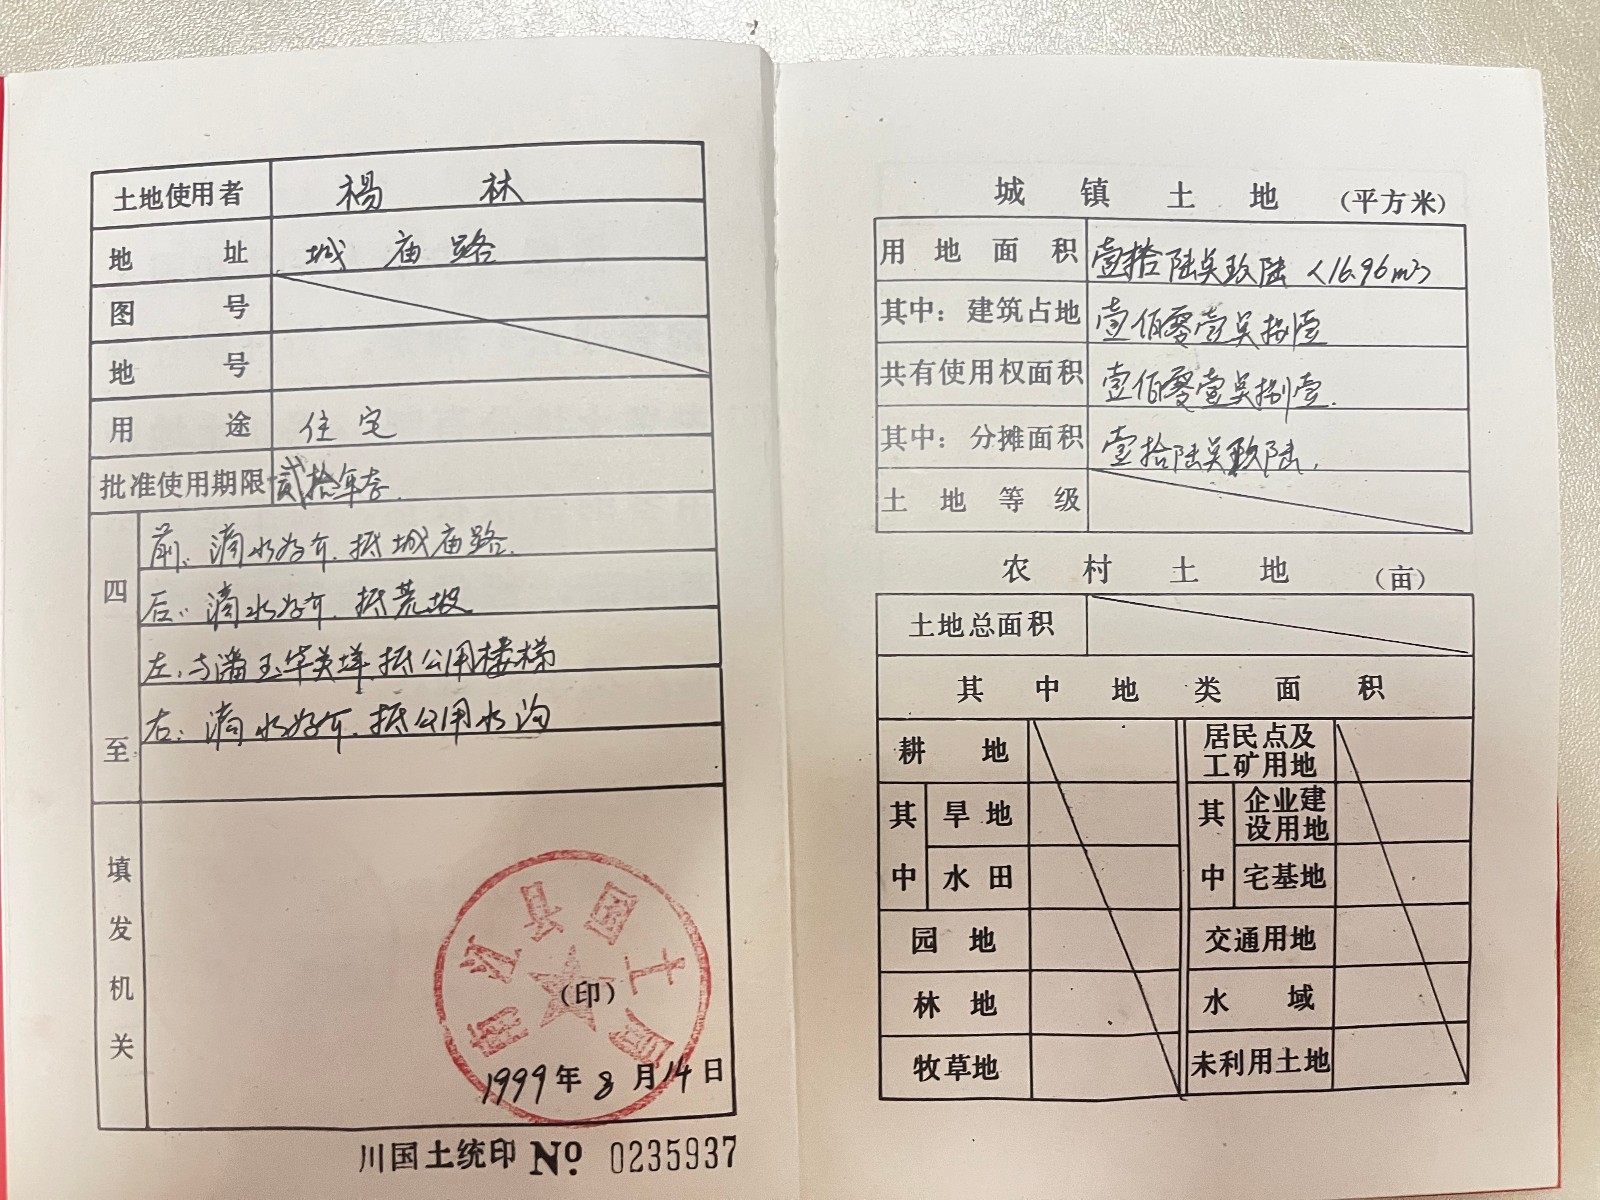 土地使用者 杨 林
地 址 城庙路
图 号
地 号
用 途 住宅
批准使用期限 贰拾年
四至
前:滴水为介.抵城庙路.
后:滴水为介.抵荒坡
左:与潘玉华关墙.抵公用楼梯
右:滴水为介.抵公用水沟
填发机关
南江县国土局
(印)
1999年8月14日
川国土统印 No. 0235937
城镇土地 (平方米)
用地面积 壹拾陆点玖陆 <16.96m²>
其中:建筑占地 壹佰零壹点捌壹
共有使用权面积 壹佰零壹点捌壹.
其中:分摊面积 壹拾陆点玖陆.
土地等级
农村土地 (亩)
土地总面积
其中地类面积
耕 地 居民点及工矿用地
其中 旱地 其中 企业建设用地
水田 宅基地
园 地 交通用地
林 地 水 域
牧草地 未利用土地